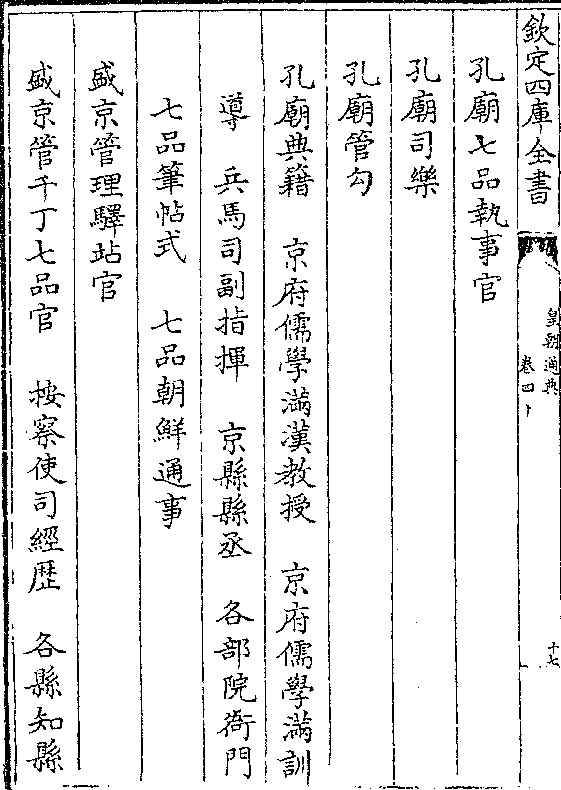 欽定四庫全書
皇朝通典
卷四十
十七
孔廟七品執事官
孔廟司樂
孔廟管勾
孔廟典籍 京府儒學滿漢教授 京府儒學滿訓
導 兵馬司副指揮 京縣縣丞 各部院衙門
七品筆帖式 七品朝鮮通事
盛京管理驛站官
盛京管千丁七品官 按察使司經歷 各縣知縣